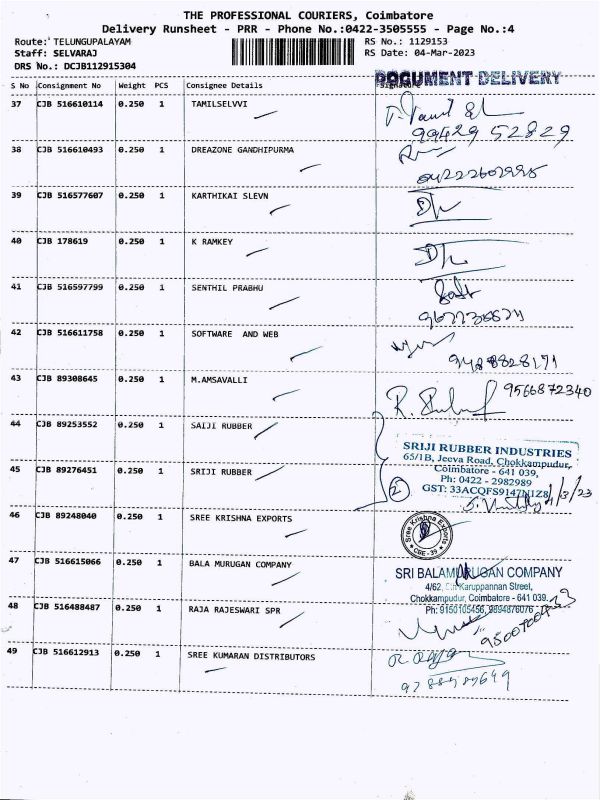 THE PROFESSIONAL COURIERS, Coimbatore
Delivery Runsheet - PRR - Phone No.:0422-3505555 - Page No.:4
Route: TELUNGUPALAYAM RS No.: 1129153
Staff: SELVARAJ RS Date: 04-Mar-2023
DRS No.: DCJB112915304
DOCUMENT DELIVERY
S No Consignment No Weight PCS Consignee Details Signature
37 CJB 516610114 0.250 1 TAMILSELVVI
99429 52829
38 CJB 516610493 0.250 1 DREAZONE GANDHIPURMA
39 CJB 516577607 0.250 1 KARTHIKAI SLEVN
40 CJB 178619 0.250 1 K RAMKEY
41 CJB 516597799 0.250 1 SENTHIL PRABHU
42 CJB 516611758 0.250 1 SOFTWARE AND WEB
9488828171
43 CJB 89308645 0.250 1 M.AMSAVALLI
9566872340
44 CJB 89253552 0.250 1 SAIJI RUBBER
SRIJI RUBBER INDUSTRIES
65/1B, Jeeva Road, Chokkampudur,
Coimbatore - 641 039,
Ph: 0422 - 2982989
GST: 33ACQFS9147N1Z8
45 CJB 89276451 0.250 1 SRIJI RUBBER
2
46 CJB 89248040 0.250 1 SREE KRISHNA EXPORTS
Sree Krishna Exports
CBE - 39
47 CJB 516615066 0.250 1 BALA MURUGAN COMPANY
SRI BALAMURUGAN COMPANY
4/62, Karuppannan Street,
Chokkampudur, Coimbatore - 641 039.
Ph: 9150105456, 9894876076
48 CJB 516488487 0.250 1 RAJA RAJESWARI SPR
49 CJB 516612913 0.250 1 SREE KUMARAN DISTRIBUTORS